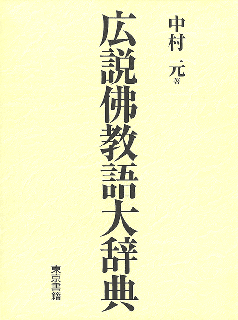 中村 元 著
広説佛教語大辞典
東京書籍